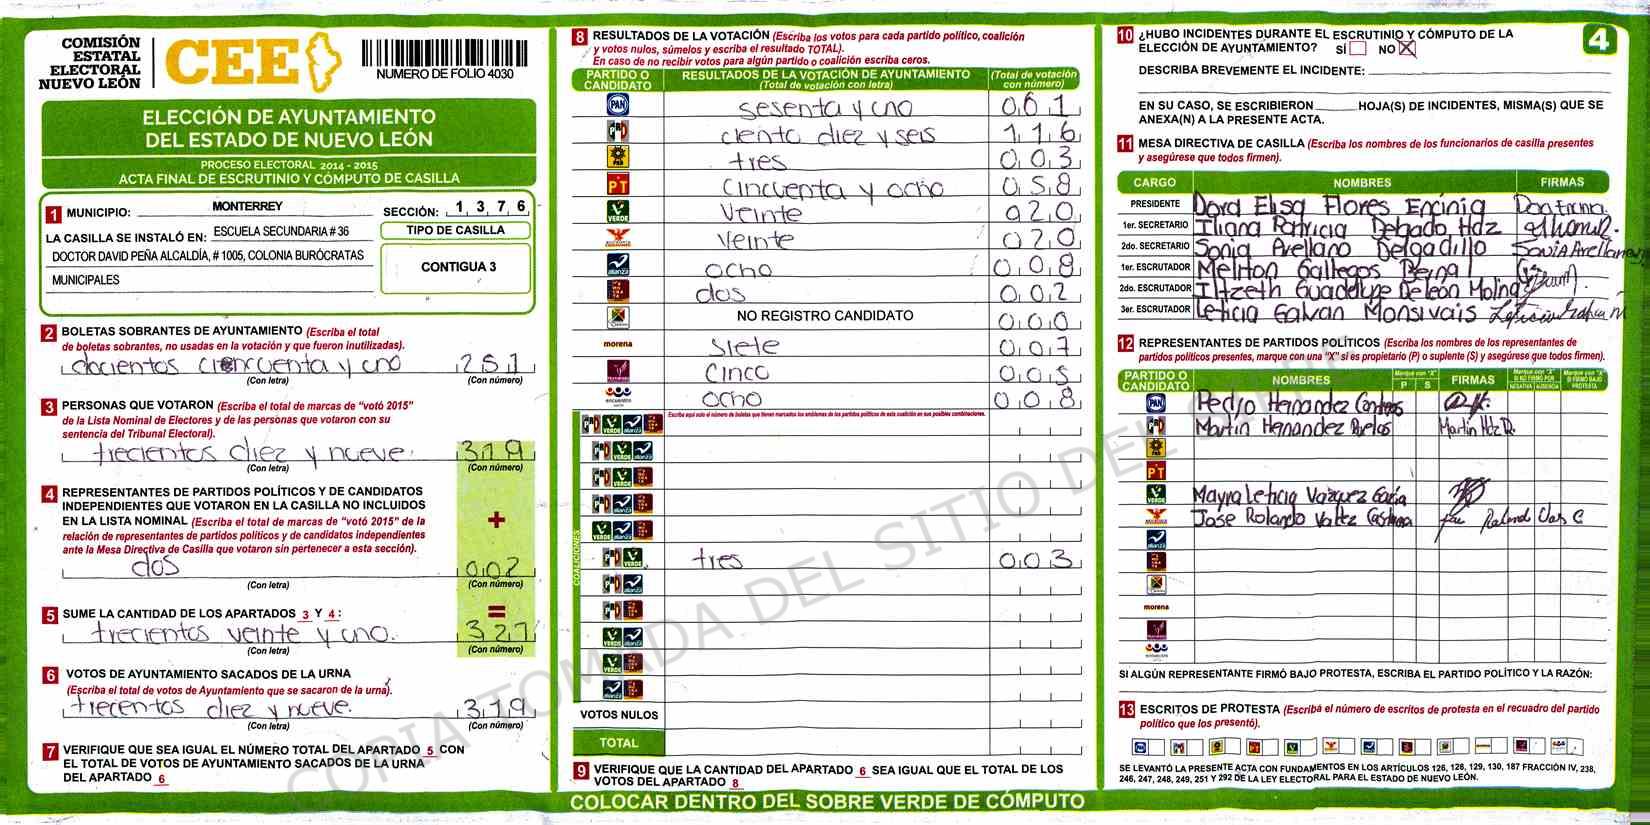 COMISIÓN
ESTATAL
ELECTORAL
NUEVO LEÓN
CEE
NUMERO DE FOLIO 4030
ELECCIÓN DE AYUNTAMIENTO
DEL ESTADO DE NUEVO LEÓN
PROCESO ELECTORAL 2014 - 2015
ACTA FINAL DE ESCRUTINIO Y CÓMPUTO DE CASILLA
1 MUNICIPIO: MONTERREY SECCIÓN: 1 3 7 6
LA CASILLA SE INSTALÓ EN: ESCUELA SECUNDARIA # 36
DOCTOR DAVID PEÑA ALCALDÍA, # 1005, COLONIA BURÓCRATAS
MUNICIPALES
TIPO DE CASILLA
CONTIGUA 3
2 BOLETAS SOBRANTES DE AYUNTAMIENTO (Escriba el total
de boletas sobrantes, no usadas en la votación y que fueron inutilizadas).
251
(Con letra) (Con número)
3 PERSONAS QUE VOTARON (Escriba el total de marcas de "votó 2015"
de la Lista Nominal de Electores y de las personas que votaron con su
sentencia del Tribunal Electoral).
trecientos diez y nueve. 319
(Con letra) (Con número)
4 REPRESENTANTES DE PARTIDOS POLÍTICOS Y DE CANDIDATOS
INDEPENDIENTES QUE VOTARON EN LA CASILLA NO INCLUIDOS
EN LA LISTA NOMINAL (Escriba el total de marcas de "votó 2015" de la
relación de representantes de partidos políticos y de candidatos independientes
ante la Mesa Directiva de Casilla que votaron sin pertenecer a esta sección).
+
dos 002
(Con letra) (Con número)
5 SUME LA CANTIDAD DE LOS APARTADOS 3 Y 4 :
=
trecientos veinte y uno. 321
(Con letra) (Con número)
6 VOTOS DE AYUNTAMIENTO SACADOS DE LA URNA
(Escriba el total de votos de Ayuntamiento que se sacaron de la urna).
trecentos diez y nueve. 319
(Con letra) (Con número)
7 VERIFIQUE QUE SEA IGUAL EL NÚMERO TOTAL DEL APARTADO 5 CON
EL TOTAL DE VOTOS DE AYUNTAMIENTO SACADOS DE LA URNA
DEL APARTADO 6
8 RESULTADOS DE LA VOTACIÓN (Escriba los votos para cada partido político, coalición
y votos nulos, súmelos y escriba el resultado TOTAL).
En caso de no recibir votos para algún partido o coalición escriba ceros.
PARTIDO O CANDIDATO
RESULTADOS DE LA VOTACIÓN DE AYUNTAMIENTO
(Total de votación con letra)
(Total de votación con número)
PAN sesenta y uno 061
PRD ciento diez y seis 116
tres 003
PT cincuenta y ocho 058
VERDE veinte 020
veinte 020
alianza ocho 008
dos 002
NO REGISTRO CANDIDATO 000
morena siete 007
cinco 005
encuentro ocho 008
Escriba aquí solo el número de boletas que tienen marcados los emblemas de los partidos políticos de esta coalición en sus posibles combinaciones.
COALICIONES
VERDE tres 003
VOTOS NULOS
TOTAL
9 VERIFIQUE QUE LA CANTIDAD DEL APARTADO 6 SEA IGUAL QUE EL TOTAL DE LOS
VOTOS DEL APARTADO 8
COLOCAR DENTRO DEL SOBRE VERDE DE CÓMPUTO
10 ¿HUBO INCIDENTES DURANTE EL ESCRUTINIO Y CÓMPUTO DE LA
ELECCIÓN DE AYUNTAMIENTO? SÍ NO X
4
DESCRIBA BREVEMENTE EL INCIDENTE:
EN SU CASO, SE ESCRIBIERON HOJA(S) DE INCIDENTES, MISMA(S) QUE SE
ANEXA(N) A LA PRESENTE ACTA.
11 MESA DIRECTIVA DE CASILLA (Escriba los nombres de los funcionarios de casilla presentes
y asegúrese que todos firmen).
CARGO NOMBRES FIRMAS
PRESIDENTE Dora Elisa Flores Encinia
1er. SECRETARIO Iliana Patricia Delgado Hdz
2do. SECRETARIO Sonia Arellano Delgadillo Sonia Arellano
1er. ESCRUTADOR Meliton Gallegos Bernal
2do. ESCRUTADOR Itzeth Guadalupe De león Molina
3er. ESCRUTADOR Leticia Galvan Monsivais
12 REPRESENTANTES DE PARTIDOS POLÍTICOS (Escriba los nombres de los representantes de
partidos políticos presentes, marque con una "X" si es propietario (P) o suplente (S) y asegúrese que todos firmen).
PARTIDO O CANDIDATO
NOMBRES
Marque con "X"
P S
FIRMAS
Marque con "X" SI NO FIRMÓ POR
NEGATIVA AUSENCIA
Marque con "X" SI FIRMÓ BAJO PROTESTA
PAN Pedro Hernandez Contreras
Martin Hernandez Martin Hdz R.
PT
VERDE Mayra Leticia Vazquez Garcia
Jose Rolando Valdez
morena
SI ALGÚN REPRESENTANTE FIRMÓ BAJO PROTESTA, ESCRIBA EL PARTIDO POLÍTICO Y LA RAZÓN:
13 ESCRITOS DE PROTESTA (Escriba el número de escritos de protesta en el recuadro del partido
político que los presentó).
SE LEVANTÓ LA PRESENTE ACTA CON FUNDAMENTOS EN LOS ARTÍCULOS 126, 128, 129, 130, 187 FRACCIÓN IV, 238,
246, 247, 248, 249, 251 Y 292 DE LA LEY ELECTORAL PARA EL ESTADO DE NUEVO LEÓN.
COPIA TOMADA DEL SITIO DEL CEE